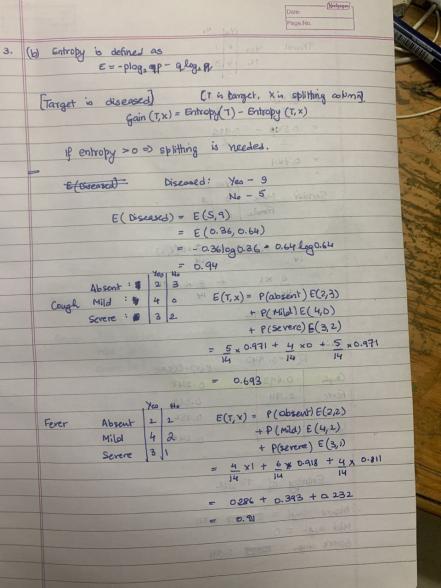 Date:
Page No.
3. (b) Entropy is defined as
E = -plog₂ p - qlog₂
[Target is diseased] [T is target, X is splitting column]
Gain (T,X) = Entropy(T) - Entropy (T,X)
If entropy >0 => splitting is needed.
E(Diseased) Diseased: Yes - 9
No - 5
E(Diseased) = E(5,9)
= E(0.36, 0.64)
= -0.36log0.36 - 0.64log0.64
= 0.94
Yes No
Absent : 2 3
Cough Mild : 4 0
Severe : 3 2
E(T,X) = P(absent) E(2,3)
+ P(Mild) E(4,0)
+ P(Severe) E(3,2)
= 5/14 x 0.971 + 4/14 x 0 + 5/14 x 0.971
= 0.693
Yes No
Fever Absent 2 2
Mild 4 2
Severe 3 1
E(T,X) = P(absent) E(2,2)
+ P(mild) E(4,2)
+ P(severe) E(3,1)
= 4/14 x 1 + 6/14 x 0.918 + 4/14 x 0.811
= 0.286 + 0.393 + 0.232
= 0.91